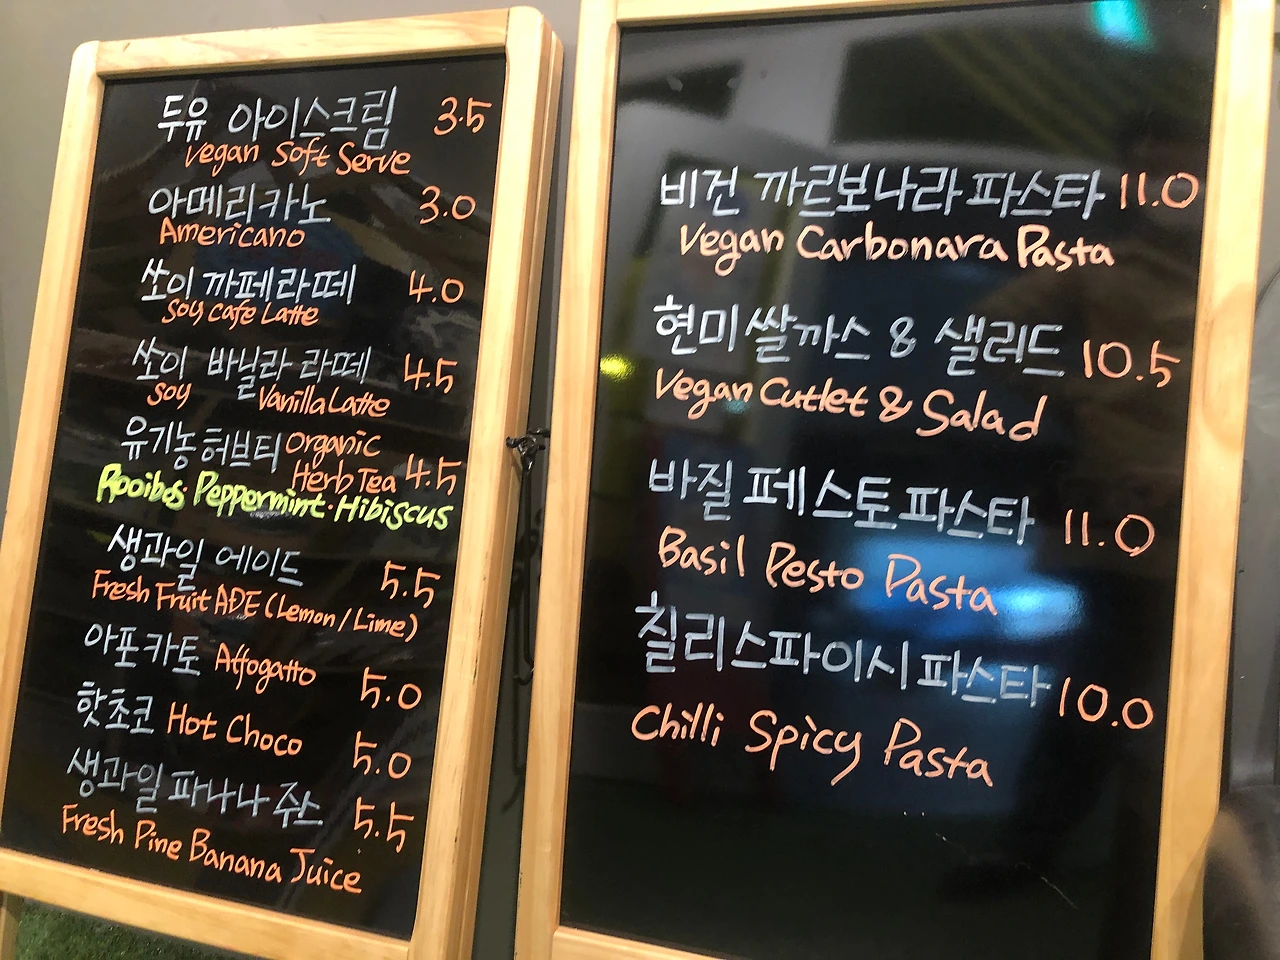 두유 아이스크림 3.5
Vegan Soft Serve
아메리카노 3.0
Americano
쏘이 까페라떼 4.0
Soy Cafe Latte
쏘이 바닐라 라떼 4.5
Soy Vanilla Latte
유기농 허브티 Organic
Herb Tea 4.5
Rooibos · Peppermint · Hibiscus
생과일 에이드 5.5
Fresh Fruit ADE (Lemon/Lime)
아포카토 Affogatto 5.0
핫초코 Hot Choco 5.0
생과일 파나나 주스 5.5
Fresh Pine Banana Juice
비건 까르보나라 파스타 11.0
Vegan Carbonara Pasta
현미쌀까스 & 샐러드 10.5
Vegan Cutlet & Salad
바질 페스토 파스타 11.0
Basil Pesto Pasta
칠리 스파이시 파스타 10.0
Chilli Spicy Pasta